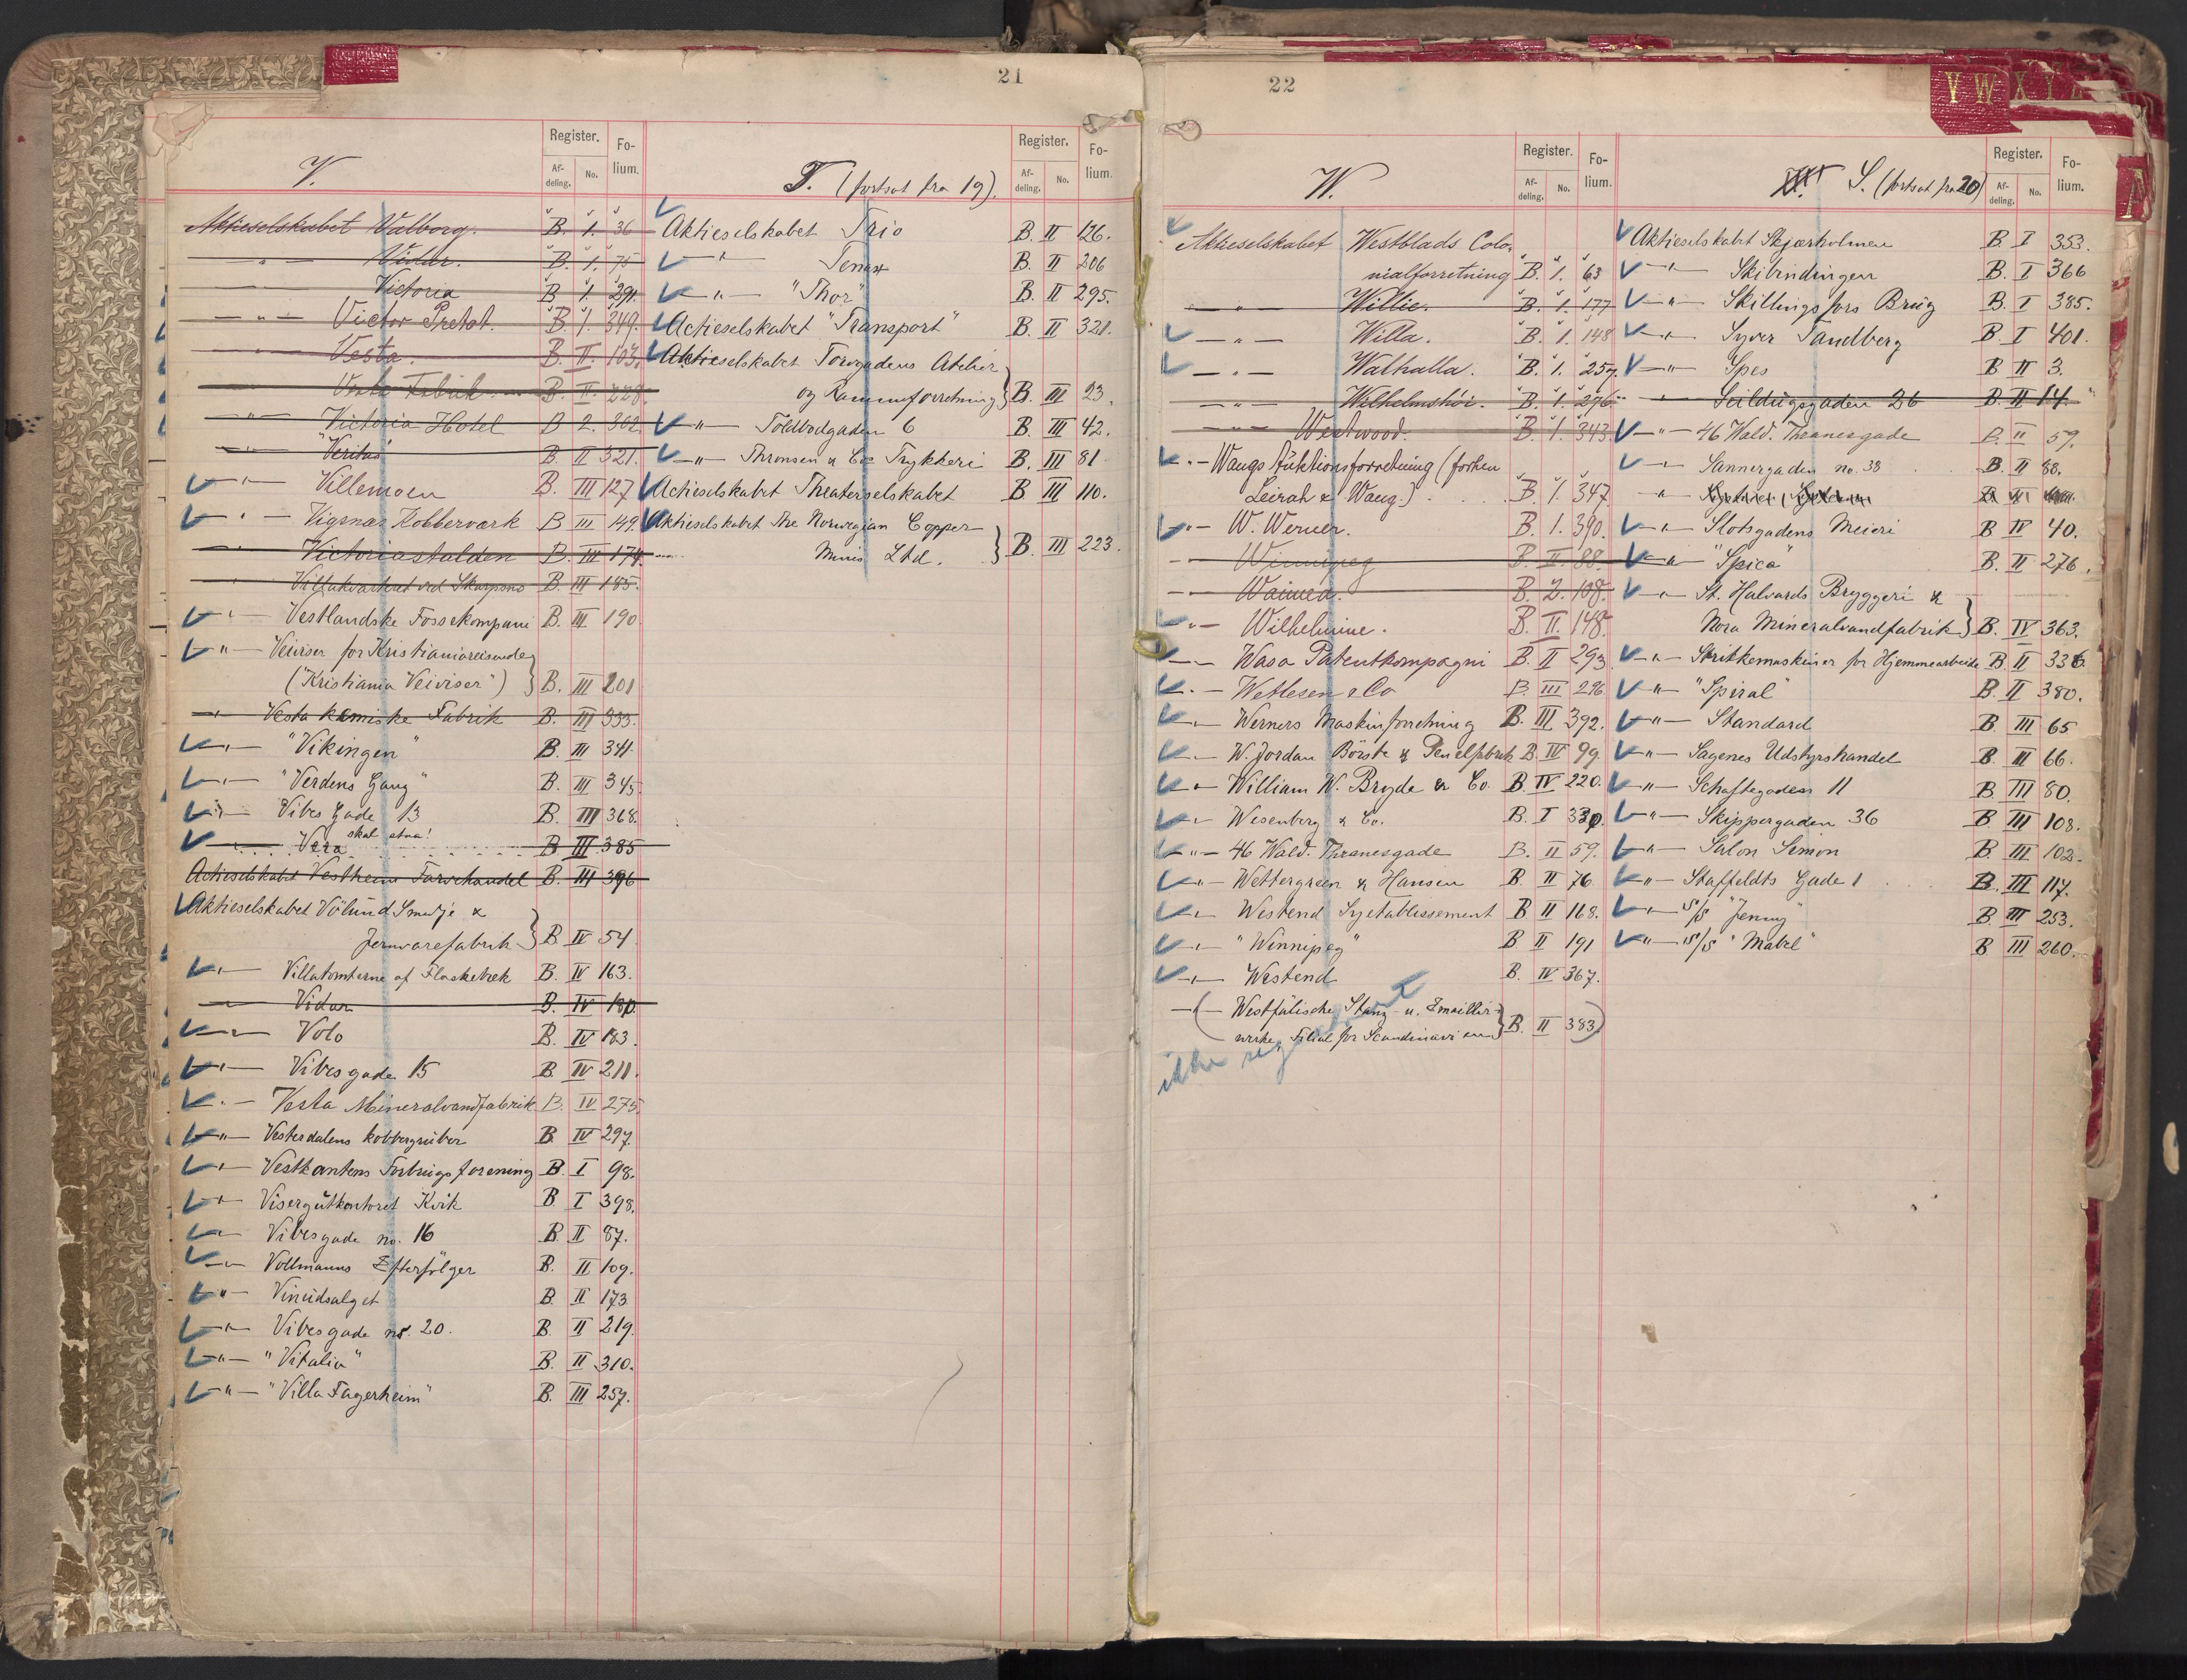 21
V.
Register.
Fo-
lium.
Af-
deling.
No.
Aktieselskabet Valborg. B. 1. 36
— " — Vidar. B. 1. 75
— Victoria B 1. 291.
— " — Victor Pretat. B. 1. 349.
— " — Vesta. B. II. 103.
Vesta Fabrik B. II. 228.
— " — Victoria Hotel B 2. 362
— " — "Veritas" B. II 321.
— " — Villemoen B. III 127
— " — Vigsnæs Kobberværk B III 149
— " — Victoriastalden B. III 174.
— " — Villakvarteret ved Skarpsno B. III 185.
— " — Vestlandske Fossekompani B. III 190
— " — Veiviser for Kristianiareisende
("Kristiania Veiviser") B. III 201
— " — Vesta kemiske Fabrik B. III 333.
— " — "Vikingen" B. III 341.
— " — "Verdens Gang" B. III 345.
— " — Vibes Gade 13 B. III 368.
skal staa!
— Vera B III 385
Actieselskabet Vestheim Farvehandel B. III 396
Aktieselskabet Völund Smedje &
Jernvarefabrik B IV 54
— " — Villatomterne af Flaskebæk B. IV 163.
— " — Vidar B. IV 180.
— " — Volo B. IV 183.
— " — Vibesgade 15 B. IV 211.
— " — Vesta Mineralvandfabrik B. IV 275.
— " — Vesterdalens kobbergruber B. IV 297.
— " — Vestkantens Forbrugsforening B. I 98.
— " — Visergutkontoret Kvik B I 398.
— " — Vibesgade no. 16 B. II 87.
— " — Vollmanns Efterfölger B. II 109.
— " — Vinudsalget B. II 173
— " — Vibesgade nr. 20. B. II 219.
— " — "Vitalia" B. II 310.
— " — "Villa Fagerheim" B. III 257.
T. (fortsat fra 19).
Register.
Fo-
lium.
Af-
deling.
No.
Aktieselskabet Trio B. II 126.
— " — Tenax B. II 206
— " — "Thor" B. II 295.
Actieselskabet "Transport" B. II 321.
Aktieselskabet Torvgadens Atelier
og Rammeforretning B. III 23.
— " — Toldbodgaden 6 B. III 42.
— " — Thronsen & Co's Trykkeri B. III 81
Actieselskabet Theaterselskabet B III 110.
Aktieselskabet The Norwegian Copper
Mines Ltd. B. III 223.
22
V W X Y Z
W.
Register.
Fo-
lium.
Af-
deling.
No.
Aktieselskabet Westblads Colo-
nialforretning B. 1. 63
— " — Willie. B. 1. 177
— " — Willa. B. 1. 148
— " — Walhalla. B. 1. 257.
— " — Wilhelmshöi. B. 1. 276.
— " — Westwood. B. 1. 343.
— " — Waugs Auktionsforretning (forhen
Leirah & Waug.) B. 1. 347
— " — W. Werner. B. 1. 390.
— " — Winnipeg B. II. 88.
— " — Waimea. B. 2. 108.
— " — Wilhelmine. B. II. 148.
— " — Wasa Patentkompagni B. II 293
— " — Wetlesen & Co B. III 296
— " — Werners Maskinforretning B. III 392.
— " — W. Jordan Börste & Penselfabrik B. IV 99
— " — William W. Bryde & Co. B. IV 220.
— " — Wesenberg & Co. B. I 330.
— " — 46 Wald. Thranesgade B. II 59.
— " — Wettergreen & Hansen B. II 76
— " — Westend Syetablissement B II 168.
— " — "Winnipeg" B II 191
— " — Westend B. IV 367.
— (— Westfälische Stanz- u. Emaillir-
werke, Filial for Scandinavien B. II 383)
ikke
W. S. (fortsat fra 20)
Register.
Fo-
lium.
Af-
deling.
No.
Aktieselskabet Skjærholmen B. I 353.
— " — Skibindingen B. I 366
— " — Skillingsfors Brug B. I 385.
— " — Syver Sandberg B. I 401.
— " — Spes B II 3.
— " — Seildugsgaden 26 B. II 14.
— " — 46 Wald. Thranesgade B. II 59.
— " — Sannergaden no. 38 B. II 88.
— " — Slotsgadens Meieri B IV 40.
— " — "Spica" B. II 276.
— " — St. Halvards Bryggeri &
Nora Mineralvandfabrik B. IV 363.
— " — Strikkemaskiner for Hjemmearbeide B. II 336
— " — "Spiral" B. II 380.
— " — Standard B III 65
— " — Sagenes Udstyrshandel B. III 66.
— " — Schaftegaden 11 B. III 80.
— " — Skippergaden 36 B III 108.
— " — Salon Simon B. III 102.
— " — Staffeldts Gade 1 B. III 117.
— " — S/S "Jenny" B. III 253.
— " — S/S "Mabel" B III 260.